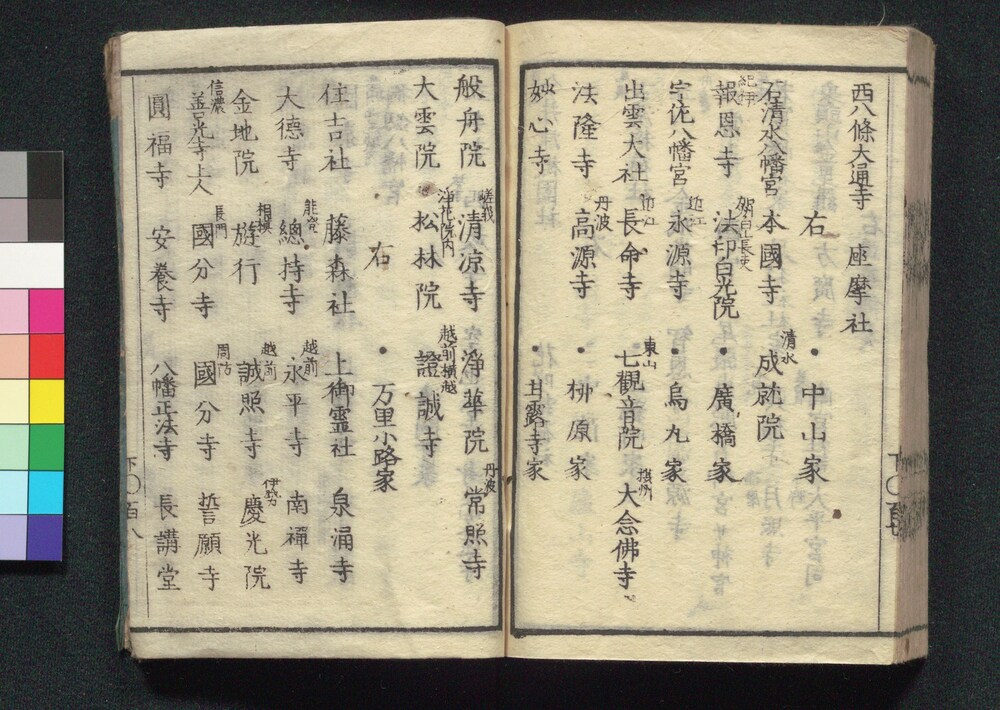 西八條大通寺　座摩社
右　・　中山家
石清水八幡宮　本國寺　清水成就院
紀伊報恩寺　賀白山長吏法印白光院　・　廣橋家
宇佐八幡宮　近江永源寺　・　烏丸家
出雲大社　近江長命寺　東山七觀音院　摂州大念佛寺
法隆寺　丹波高源寺　・　柳原家
妙心寺　・　甘露寺家
下〇百七
般舟院　嵯峨清凉寺　淨華院　丹波常照寺
大雲院　淨花院内松林院　越前横越證誠寺
右　・　万里小路家
住吉社　藤森社　上御霊社　泉涌寺
大德寺　能登總持寺　越前永平寺　南禪寺
金地院　相模遊行　越前誠照寺　伊勢慶光院
信濃善光寺上人　長門國分寺　周防國分寺　誓願寺
圓福寺　安養寺　八幡正法寺　長講堂
下〇百八